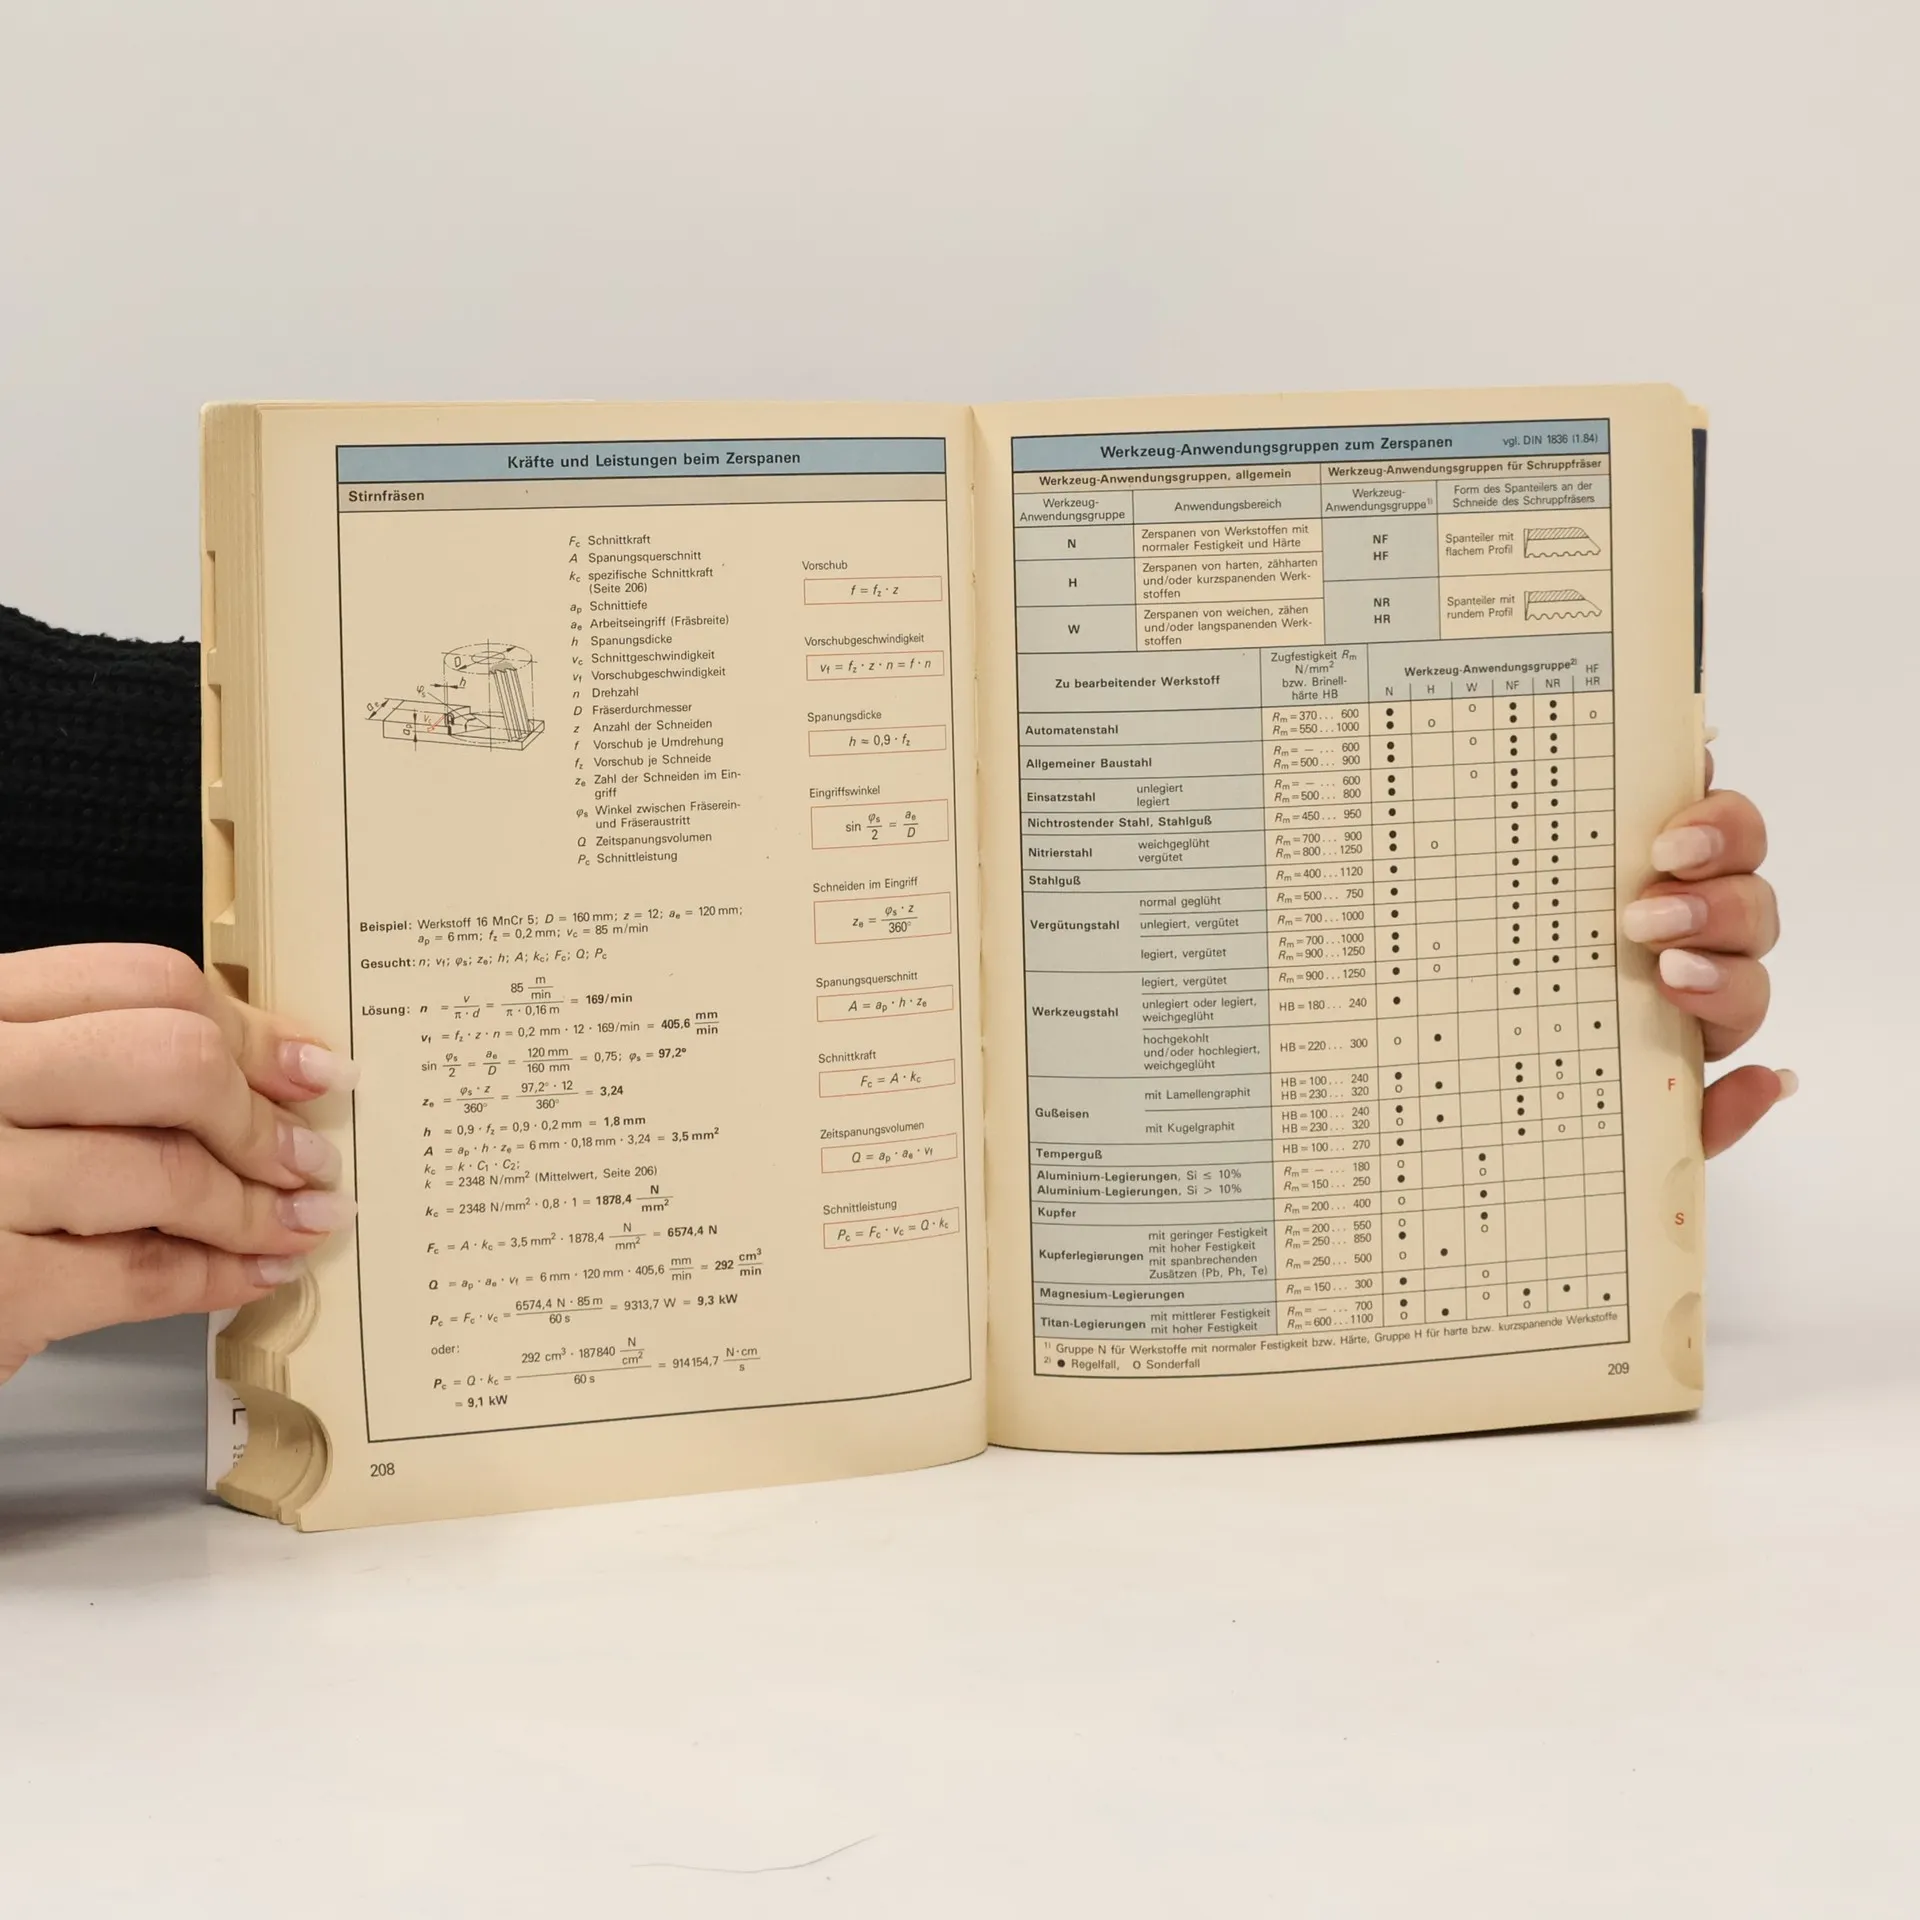 Kräfte und Leistungen beim Zerspanen
Stirnfräsen
F_c Schnittkraft
A Spanungsquerschnitt
k_c spezifische Schnittkraft
(Seite 206)
a_p Schnittiefe
a_e Arbeitseingriff (Fräsbreite)
h Spanungsdicke
v_c Schnittgeschwindigkeit
v_f Vorschubgeschwindigkeit
n Drehzahl
D Fräserdurchmesser
z Anzahl der Schneiden
f Vorschub je Umdrehung
f_z Vorschub je Schneide
z_e Zahl der Schneiden im Ein-
griff
φ_s Winkel zwischen Fräserein-
und Fräseraustritt
Q Zeitspanungsvolumen
P_c Schnittleistung
D
h
φ_s
a_e
v_f
a_p
Vorschub
f = f_z · z
Vorschubgeschwindigkeit
v_f = f_z · z · n = f · n
Spanungsdicke
h ≈ 0,9 · f_z
Eingriffswinkel
sin φ_s/2 = a_e/D
Schneiden im Eingriff
z_e = φ_s · z / 360°
Spanungsquerschnitt
A = a_p · h · z_e
Schnittkraft
F_c = A · k_c
Zeitspanungsvolumen
Q = a_p · a_e · v_f
Schnittleistung
P_c = F_c · v_c = Q · k_c
Beispiel: Werkstoff 16 MnCr 5; D = 160 mm; z = 12; a_e = 120 mm;
a_p = 6 mm; f_z = 0,2 mm; v_c = 85 m/min
Gesucht: n; v_f; φ_s; z_e; h; A; k_c; F_c; Q; P_c
Lösung: n = v / π · d = 85 m/min / π · 0,16 m = 169/min
v_f = f_z · z · n = 0,2 mm · 12 · 169/min = 405,6 mm/min
sin φ_s/2 = a_e/D = 120 mm / 160 mm = 0,75; φ_s = 97,2°
z_e = φ_s · z / 360° = 97,2° · 12 / 360° = 3,24
h ≈ 0,9 · f_z = 0,9 · 0,2 mm = 1,8 mm
A = a_p · h · z_e = 6 mm · 0,18 mm · 3,24 = 3,5 mm²
k_c = k · C_1 · C_2;
k = 2348 N/mm² (Mittelwert, Seite 206)
k_c = 2348 N/mm² · 0,8 · 1 = 1878,4 N/mm²
F_c = A · k_c = 3,5 mm² · 1878,4 N/mm² = 6574,4 N
Q = a_p · a_e · v_f = 6 mm · 120 mm · 405,6 mm/min = 292 cm³/min
P_c = F_c · v_c = 6574,4 N · 85 m / 60 s = 9313,7 W = 9,3 kW
oder:
P_c = Q · k_c = 292 cm³ · 187840 N/cm² / 60 s = 914154,7 N·cm/s
= 9,1 kW
208
Werkzeug-Anwendungsgruppen zum Zerspanen vgl. DIN 1836 (1.84)
Werkzeug-Anwendungsgruppen, allgemein Werkzeug-Anwendungsgruppen für Schruppfräser
Werkzeug-
Anwendungsgruppe
Anwendungsbereich
Werkzeug-
Anwendungsgruppe¹⁾
Form des Spanteilers an der
Schneide des Schruppfräsers
N
Zerspanen von Werkstoffen mit
normaler Festigkeit und Härte
H
Zerspanen von harten, zähharten
und/oder kurzspanenden Werk-
stoffen
W
Zerspanen von weichen, zähen
und/oder langspanenden Werk-
stoffen
NF
HF
Spanteiler mit
flachem Profil
NR
HR
Spanteiler mit
rundem Profil
Zu bearbeitender Werkstoff
Zugfestigkeit R_m
N/mm²
bzw. Brinell-
härte HB
Werkzeug-Anwendungsgruppe²⁾
N H W NF NR HF
HR
Automatenstahl R_m = 370 ... 600 ● o ● ●
R_m = 550 ... 1000 ● o ● ● o
Allgemeiner Baustahl R_m = – ... 600 ● o ● ●
R_m = 500 ... 900 ● ● ●
Einsatzstahl unlegiert R_m = – ... 600 ● o ● ●
legiert R_m = 500 ... 800 ● ● ●
Nichtrostender Stahl, Stahlguß R_m = 450 ... 950 ● ● ●
Nitrierstahl weichgeglüht R_m = 700 ... 900 ● ● ●
vergütet R_m = 800 ... 1250 ● o ● ● ●
Stahlguß R_m = 400 ... 1120 ● ● ●
Vergütungstahl normal geglüht R_m = 500 ... 750 ● ● ●
unlegiert, vergütet R_m = 700 ... 1000 ● ● ●
legiert, vergütet R_m = 700 ... 1000 ● ● ●
R_m = 900 ... 1250 ● o ● ● ●
Werkzeugstahl legiert, vergütet R_m = 900 ... 1250 ● o ● ● ●
unlegiert oder legiert,
weichgeglüht HB = 180 ... 240 ● ● ●
hochgekohlt
und/oder hochlegiert,
weichgeglüht HB = 220 ... 300 o ● o o ●
Gußeisen mit Lamellengraphit HB = 100 ... 240 ● ● ●
HB = 230 ... 320 o ● ● o ●
mit Kugelgraphit HB = 100 ... 240 ● ● o o
HB = 230 ... 320 o ● ● ●
Temperguß HB = 100 ... 270 ● ● o o
Aluminium-Legierungen, Si ≤ 10% R_m = – ... 180 o ●
Aluminium-Legierungen, Si > 10% R_m = 150 ... 250 ● o
Kupfer R_m = 200 ... 400 o ●
Kupferlegierungen mit geringer Festigkeit R_m = 200 ... 550 o ●
mit hoher Festigkeit R_m = 250 ... 850 ● o
mit spanbrechenden
Zusätzen (Pb, Ph, Te) R_m = 250 ... 500 o ●
Magnesium-Legierungen R_m = 150 ... 300 ● o
Titan-Legierungen mit mittlerer Festigkeit R_m = – ... 700 ● o ● ●
mit hoher Festigkeit R_m = 600 ... 1100 o ● o ●
¹⁾ Gruppe N für Werkstoffe mit normaler Festigkeit bzw. Härte, Gruppe H für harte bzw. kurzspanende Werkstoffe
²⁾ ● Regelfall, o Sonderfall
209
F
S